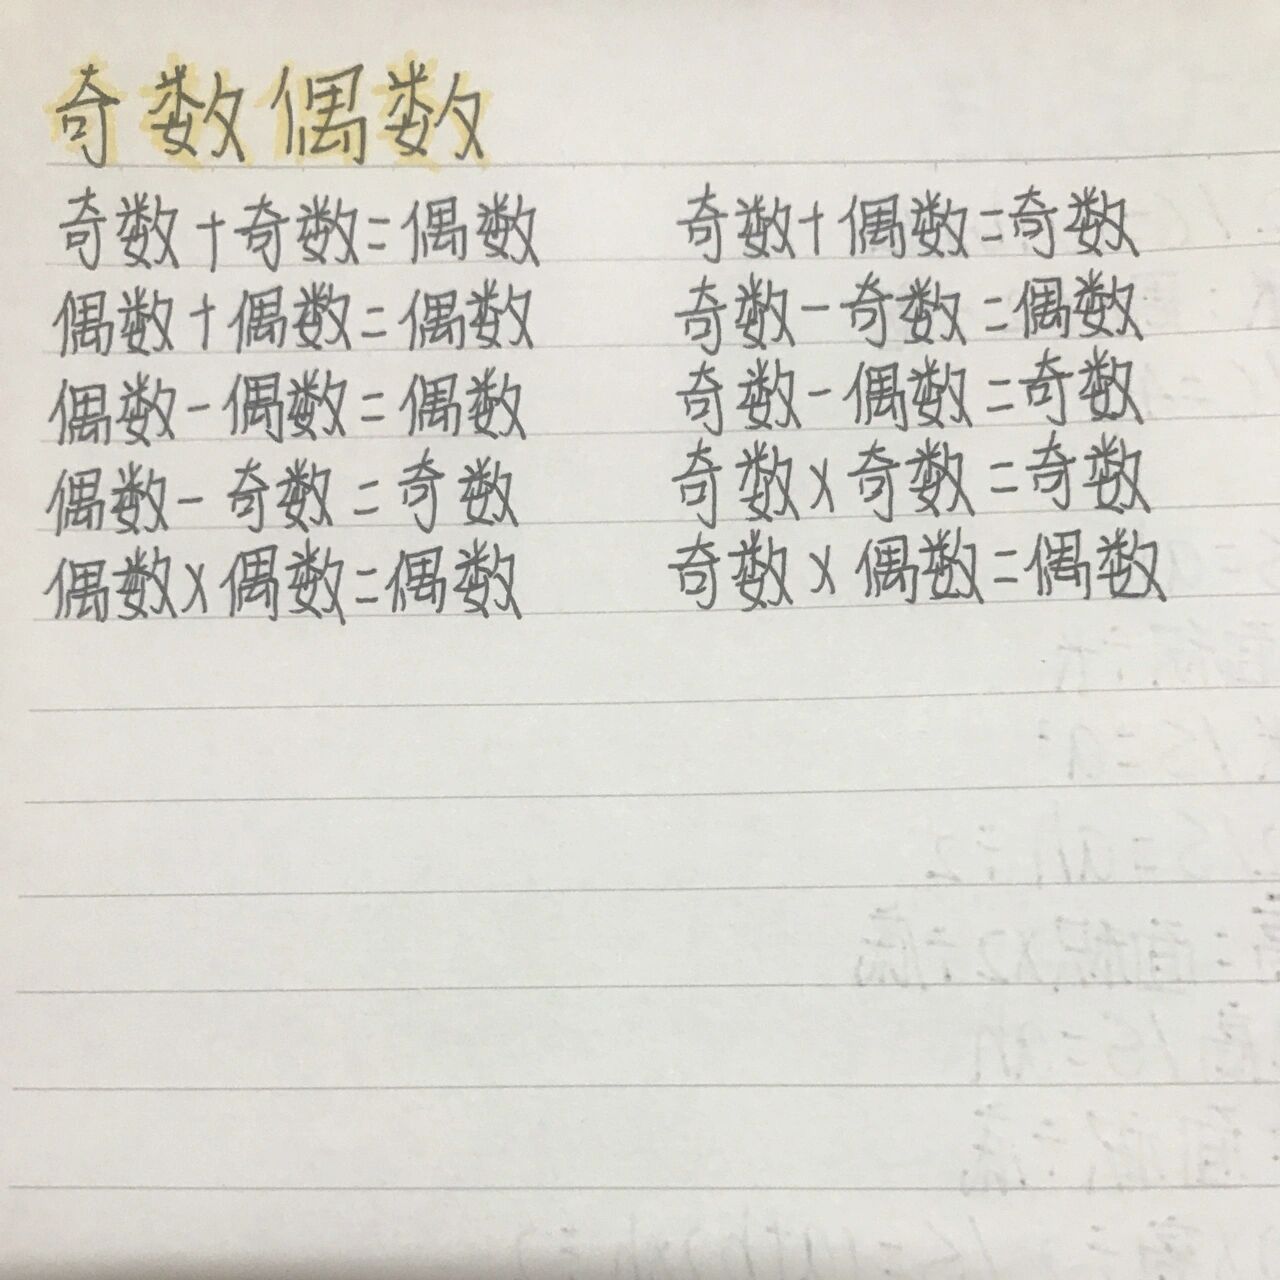 奇数偶数
奇数+奇数=偶数 奇数+偶数=奇数
偶数+偶数=偶数 奇数-奇数=偶数
偶数-偶数=偶数 奇数-偶数=奇数
偶数-奇数=奇数 奇数×奇数=奇数
偶数×偶数=偶数 奇数×偶数=偶数